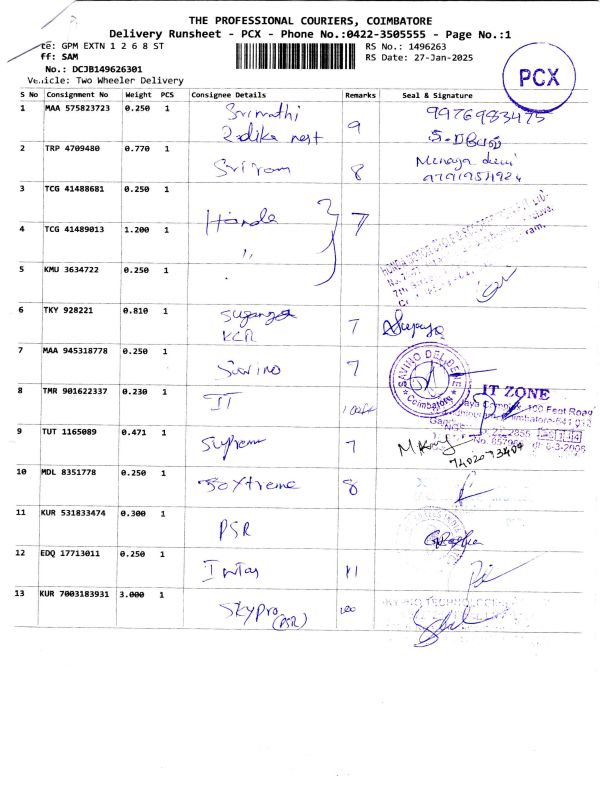 THE PROFESSIONAL COURIERS, COIMBATORE
Delivery Runsheet - PCX - Phone No.:0422-3505555 - Page No.:1
te: GPM EXTN 1 2 6 8 ST RS No.: 1496263
ff: SAM RS Date: 27-Jan-2025
No.: DCJB149626301
PCX
Vehicle: Two Wheeler Delivery
S No Consignment No Weight PCS Consignee Details Remarks Seal & Signature
1 MAA 575823723 0.250 1 Srimathi 9 9976983475
Radika nest
2 TRP 4709480 0.770 1 Sriram 8
3 TCG 41488681 0.250 1 Honda 7
4 TCG 41489013 1.200 1 ,,
5 KMU 3634722 0.250 1
6 TKY 928221 0.810 1 7
KCR
7 MAA 945318778 0.250 1 Savino 7 SAVINO DEL BENE
Coimbatore
8 TMR 901622337 0.230 1 IT IT ZONE
100 Feet Road
Coimbatore-641 012
9 TUT 1165089 0.471 1 Supreme 7
7402073404
10 MDL 8351778 0.250 1 Boxtreme 8
11 KUR 531833474 0.300 1 PSR
12 EDQ 17713011 0.250 1 Intas 11
13 KUR 7003183931 3.000 1 Skypro
(PSR)